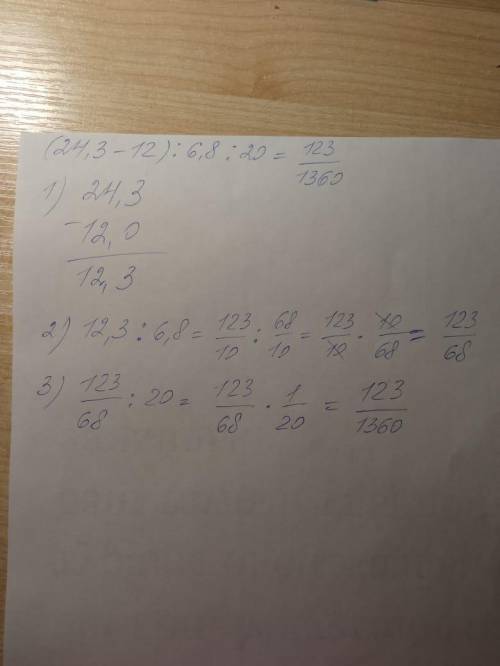 (24,3-12):6,8:20=123/1360
1) 24,3
-12,0
12,3
2) 12,3:6,8=123/10:68/10=123/10·10/68=123/68
3) 123/68:20=123/68·1/20=123/1360